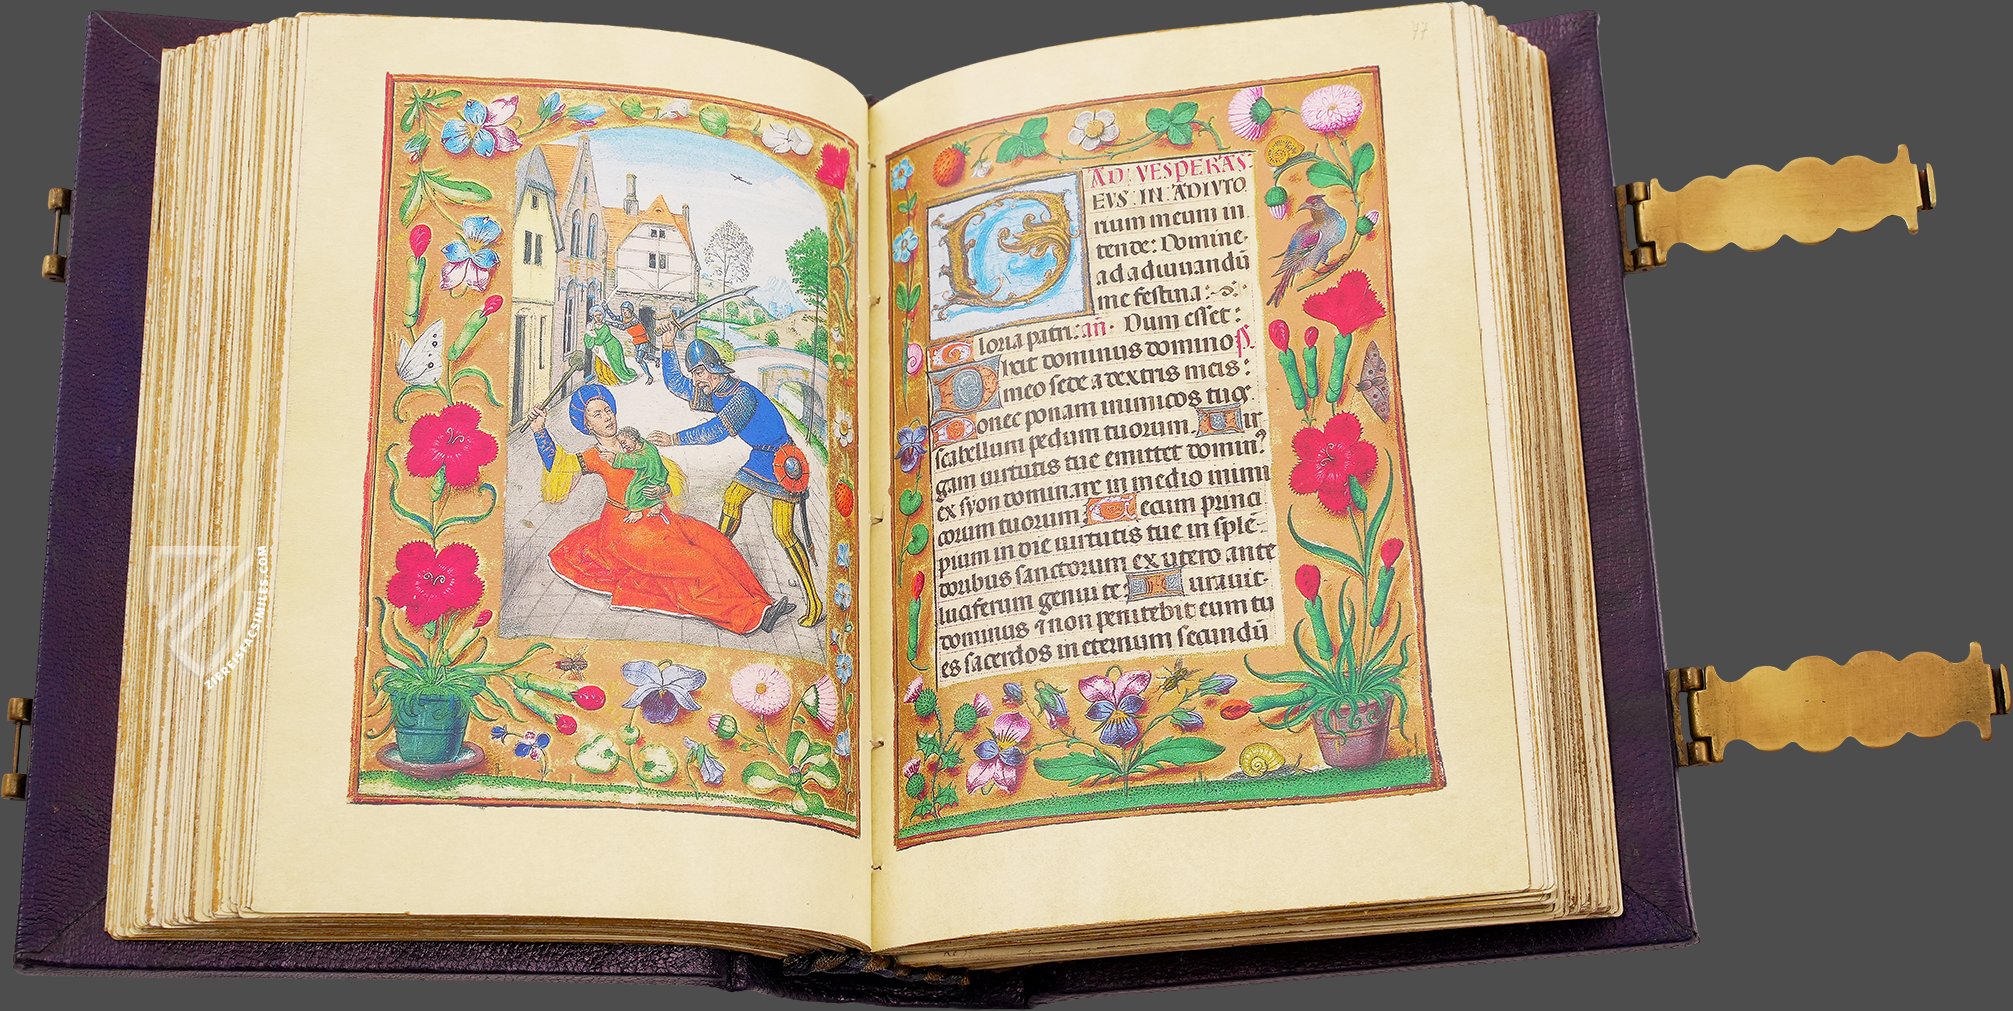 ZIEREISFACSIMILES.COM
77
AD VESPERAS
EVS IN ADIVTO
rium meum in
tende: Domine
ad adiuuandū
me festina:
loria patri: añ. Dum esset:
ixit dominus domino ps.
meo sede a dextris meis:
onec ponam inimicos tuos
scabellum pedum tuorum. Uir
gam uirtutis tue emittet domin⁹
ex syon dominare in medio inimi
corum tuorum Tecum princi
pium in die uirtutis tue in sple
doribus sanctorum ex utero ante
luciferum genui te: Iurauit
dominus ⁊ non penitebit eum tu
es sacerdos in eternum secundū